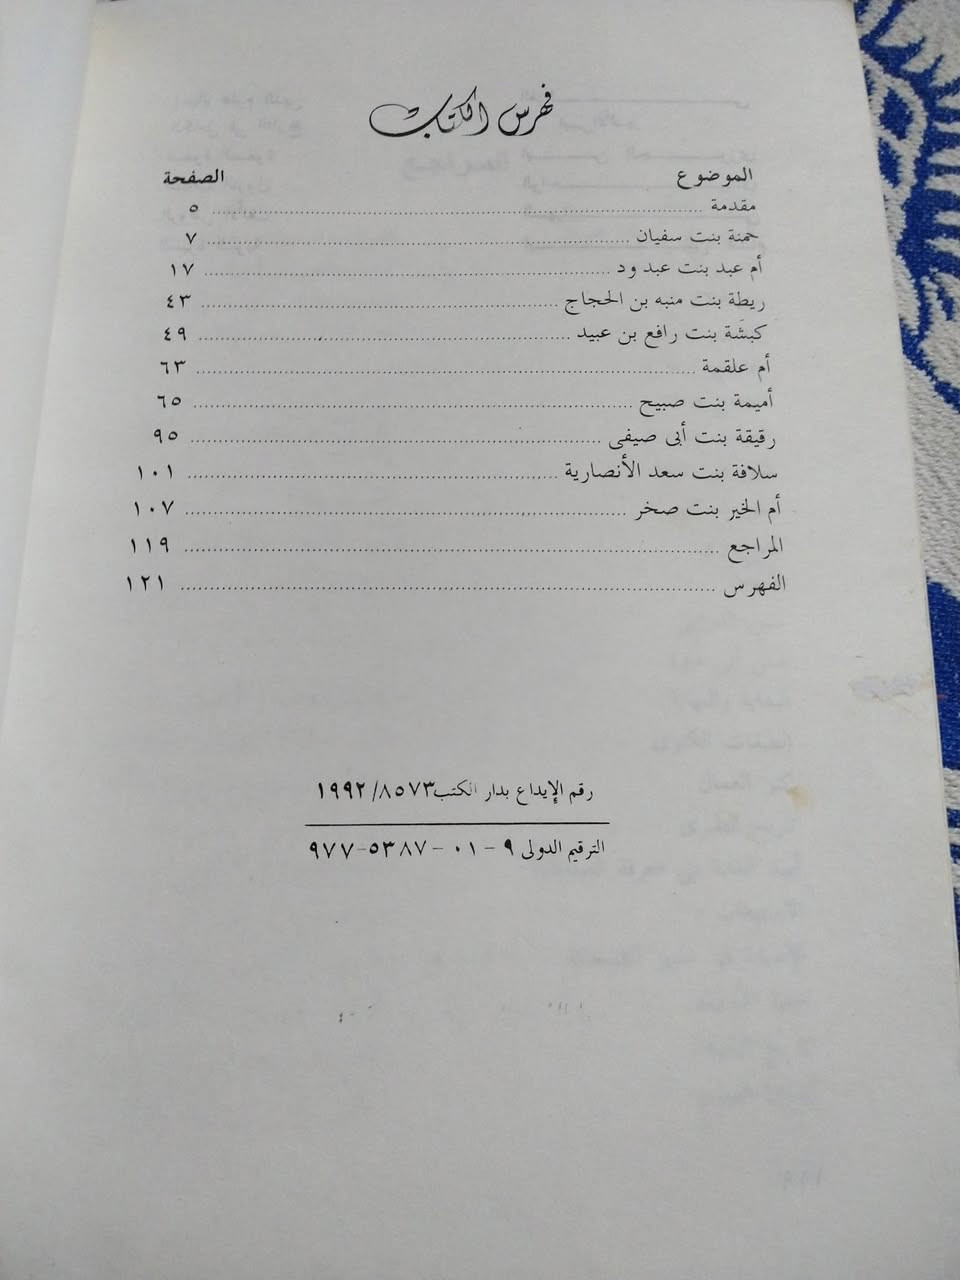 فهرس الكتاب
الموضوع الصفحة
مقدمة ........ ٥
حمنة بنت سفيان ........ ٧
أم عبد بنت عبد ود ........ ١٧
ريطة بنت منبه بن الحجاج ........ ٤٣
كبشة بنت رافع بن عبيد ........ ٤٩
أم علقمة ........ ٦٣
أميمة بنت صبيح ........ ٦٥
رقيقة بنت أبى صيفى ........ ٩٥
سلافة بنت سعد الأنصارية ........ ١٠١
أم الخير بنت صخر ........ ١٠٧
المراجع ........ ١١٩
الفهرس ........ ١٢١
رقم الإيداع بدار الكتب ٨٥٧٣/ ١٩٩٢
الترقيم الدولى ٩ - ٠١ - ٥٣٨٧ - ٩٧٧